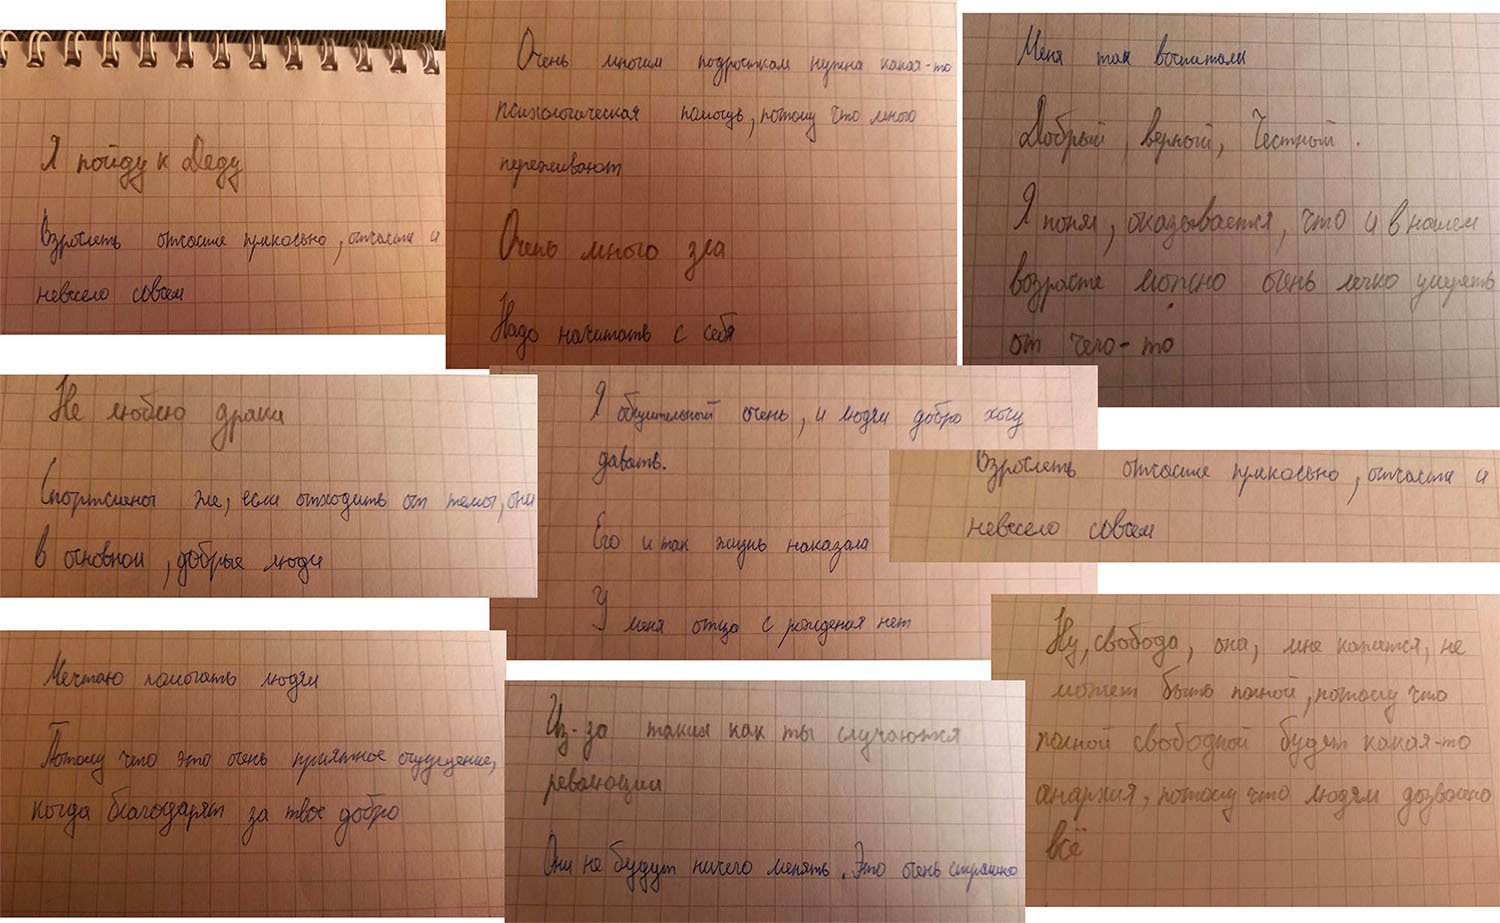 Я пойду к Деду
Взрослеть отчасти прикольно, отчасти и
невесело совсем
Очень многим подросткам нужна какая-то
психологическая помощь, потому что много
переживают
Очень много зла
Надо начинать с себя
Меня так воспитали
Добрый, верный, Честный.
Я понял, оказывается, что и в нашем
возрасте можно очень легко умереть
от чего-то
Не люблю драки
Спортсмены же, если отходить от темы, они
в основном, добрые люди
Я общительный очень, и людям добро хочу
давать.
Его и так жизнь наказала
У меня отца с рождения нет
Взрослеть отчасти прикольно, отчасти и
невесело совсем
Мечтаю помогать людям
Потому что это очень приятное ощущение,
когда благодарят за твое добро
Из-за таких как ты случаются
революции
Они не будут ничего менять. Это очень страшно
Ну, свобода, она, мне кажется, не
может быть полной, потому что
полной свободной будет какая-то
анархия, потому что людям дозволено
всё